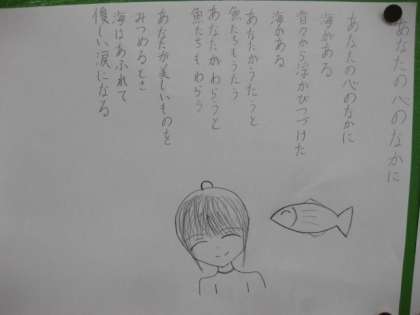 あなたの心のなかに
あなたの心のなかに
海がある
昔々から浮かびつづけた
海がある
あなたがうたうと
魚たちもうたう
あなたがわらうと
魚たちもわらう
あなたが美しいものを
みつめるとき
海はあふれて
優しい涙になる